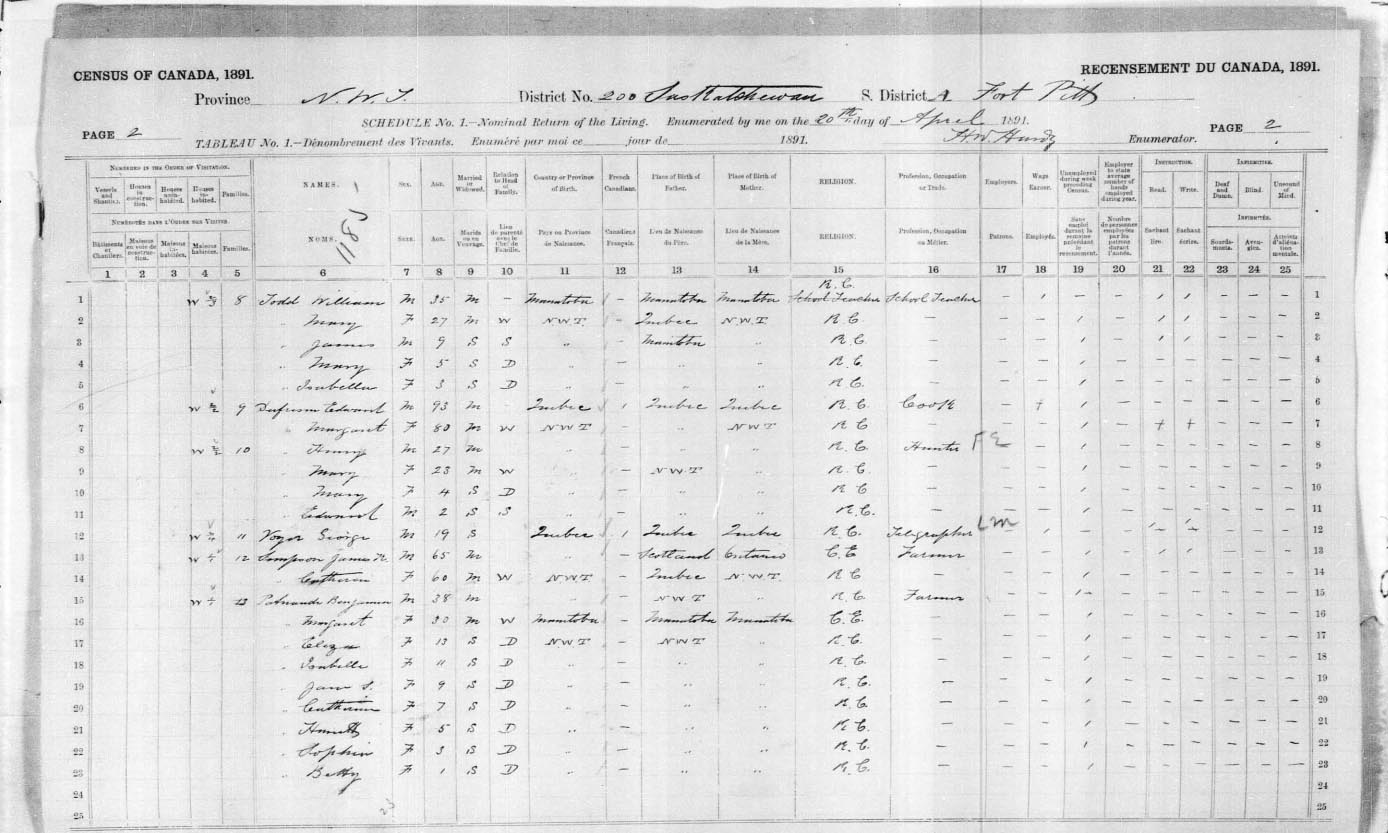 CENSUS OF CANADA, 1891. RECENSEMENT DU CANADA, 1891.
Province N.W.T. District No. 200 Saskatchewan S. District A Fort Pitt
SCHEDULE No. 1.—Nominal Return of the Living. Enumerated by me on the 20th day of April 1891.
PAGE 2 H.W. Hardy Enumerator. PAGE 2
TABLEAU No. 1.—Dénombrement des Vivants. Enuméré par moi ce jour de 1891.
NUMBERED IN THE ORDER OF VISITATION. NAMES. SEX. AGE. Married or Widowed. Relation to Head of Family. Country or Province of Birth. French Canadians. Place of Birth of Father. Place of Birth of Mother. RELIGION. Profession, Occupation or Trade. Employers. Wage Earner. Unemployed during week preceding Census. Employer to state average number of hands employed during year. INSTRUCTION. INFIRMITIES.
Vessels and Shanties. Houses in construction. Houses uninhabited. Houses inhabited. Families. Read. Write. Deaf and Dumb. Blind. Unsound of Mind.
1185
NUMÉROTÉS DANS L'ORDRE DES VISITES. NOMS. SEXE. AGE. Mariés ou en Veuvage. Lien de parenté avec le Chef de Famille. Pays ou Province de Naissance. Canadiens Français. Lieu de Naissance du Père. Lieu de Naissance de la Mère. RELIGION. Profession, Occupation ou Métier. Patrons. Employés. Sans emploi durant la semaine précédant le recensement. Nombre de personnes employées par les patrons durant l'année. INFIRMITÉS.
Bâtiments et Chantiers. Maisons en voie de construction. Maisons inhabitées. Maisons habitées. Familles. Sachant lire. Sachant écrire. Sourds-muets. Aveugles. Atteints d'aliénation mentale.
1 2 3 4 5 6 7 8 9 10 11 12 13 14 15 16 17 18 19 20 21 22 23 24 25
R.C.
1 W 8 Todd William M 35 M – Manatoba – Manatoba Manatoba School Teacher School Teacher 1
2 " Mary F 27 M W N.W.T. – Quebec N.W.T. R.C. – 2
3 " James M 9 S S " – Manitoba " R.C. – 3
4 " Mary F 5 S D " – " " R.C. – 4
5 " Isabella F 3 S D " – " " R.C. – 5
6 W 9 Edward M 93 M Quebec 1 Quebec Quebec R.C. Cook 6
7 " Margaret F 80 M W NWT – " NWT R.C. – 7
8 W 10 " Henry M 27 M " – " " R.C. Hunter FE 8
9 " Mary F 23 M W " – N.W.T " R.C. – 9
10 " Mary F 4 S D " – " " R.C – 10
11 " Edward M 2 S S " – " " R.C. – 11
12 W 11 George M 19 S Quebec 1 Quebec Quebec R.C. Telegrapher LM 12
13 W 12 Simpson James M 65 M " – Scotland Ontario C.E Farmer 13
14 " Catherine F 60 M W N.W.T – Quebec N.W.T. R.C – 14
15 W 13 Benjamin M 38 M " – NWT " R.C. Farmer 15
16 " Margaret F 30 M W Manitoba – Manatoba Manatoba C.E. – 16
17 " Eliza F 13 S D NWT – NWT " R.C. – 17
18 " Isabelle F 11 S D " – " " R.C. – 18
19 " Jane S. F 9 S D " – " " R.C. – 19
20 " Catherine F 7 S D " – " " R.C. – 20
21 " F 5 S D " – " " R.C. – 21
22 " Sophia F 3 S D " – " " R.C. – 22
23 " Betty F 1 S D " – " " R.C. – 23
24 24
25 25